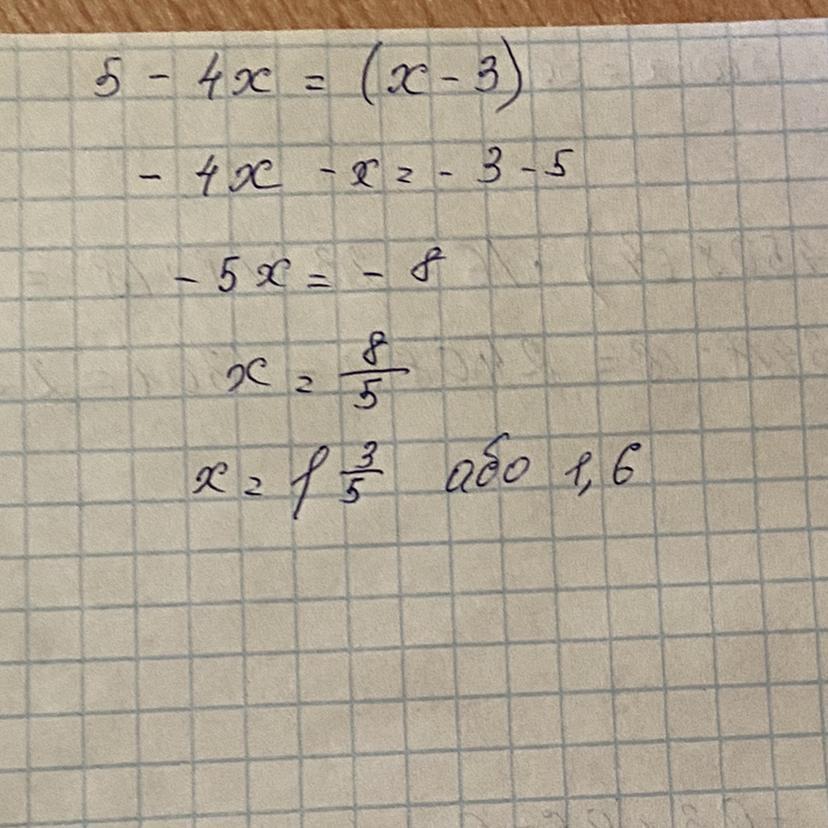 5 - 4x = (x - 3)
- 4x - x = - 3 - 5
- 5x = - 8
x = 8/5
x = 1 3/5 або 1,6